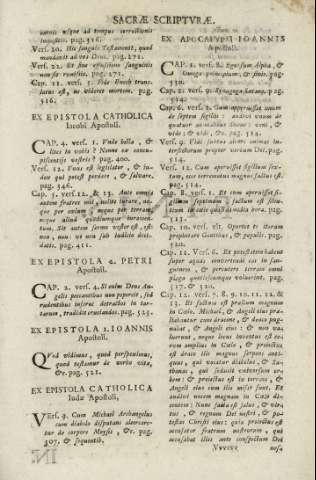 SACRÆ SCRIPTURÆ.
omnis usque ad tempus correctionis
impositis. pag. 516.
Vers. 20. Hic sanguis Testamenti, quod
mandavit ad vos Deus. pag. 271.
Vers. 22. Et sine effusione sanguinis
non fit remissio. pag. 271.
Cap. 11. vers. 5. Fide Enoch trans-
latus est, ne videret mortem. pag.
516.
EX EPISTOLA CATHOLICA
Iacobi Apostoli.
CAP. 4. vers. 1. Vnde bella, &
lites in vobis? Nonne ex concu-
piscentijs vestris? pag. 400.
Vers. 12. Vnus est legislator, & iu-
dex qui potest perdere, & salvare.
pag. 546.
Cap. 5. vers. 12. & 13. Ante omnia
autem fratres mei, nolite iurare, ne-
que per cælum, neque per terram,
neque aliud quodcumque iuramen-
tum. Sit autem sermo vester est, est:
non, non: ut non sub iudicio deci-
datis. pag. 411.
EX EPISTOLA 2. PETRI
Apostoli.
CAP. 2. vers. 4. Si enim Deus An-
gelis peccantibus non pepercit, sed
rudentibus inferni detractos in tar-
tarum, tradidit cruciandos. pag. 525.
EX EPISTOLA 1. IOANNIS
Apostoli.
QVod vidimus, quod perspeximus,
quod testamur de verbo vitæ,
&c. pag. 521.
EX EPISTOLA CATHOLICA
Iudæ Apostoli.
VErs. 9. Cum Michael Archangelus
cum diabolo disputans altercare-
tur de corpore Moysis, &c. pag.
507. & sequentib.
EX APOCALYPSI IOANNIS
Apostoli.
CAP. 1. vers. 8. Ego sum Alpha, &
Omega, principium, & finis. pag.
530.
Cap. 2. vers. 9. Synagoga Satanæ. pag.
524.
Cap. 6. vers. 1. Cum aperuisset unum
de septem sigillis: audivi unum de
quatuor animalibus dicens: veni, &
vide: & vidi, &c. pag. 514.
Vers. 9. Vidi subtus altare animas in-
terfectorum propter verbum Dei. pag.
514.
Vers. 12. Cum aperuisset sigillum sex-
tum, ecce terremotus magnus factus est.
pag. 514.
Cap. 8. vers. 1. Et cum aperuisset si-
gillum septimum, factum est silen-
tium in cælo quasi dimidia hora. pag.
Cap. 10. vers. vlt. Oportet te iterum
prophetare Gentibus, & populis. pag.
520.
Cap. 11. vers. 6. Et potestatem habent
super aquas convertendi eas in san-
guinem, & percutere terram omni
plaga quotiescumque voluerint. pag.
517. & 520.
Cap. 12. vers. 7. 8. 9. 10. 11. 12. &
13. Et factum est prælium magnum
in Cælo. Michaël, & Angeli eius præ-
liabantur cum dracone, & draco pug-
nabat, & Angeli eius: & non va-
luerunt, neque locus inventus est eo-
rum amplius in Cælo, & proiectus
est draco ille magnus serpens anti-
quus, qui vocatur diabolus, & Sa-
thanas, qui seducit universum or-
bem: & proiectus est in terram, &
Angeli eius cum illo missi sunt. Et
audivi vocem magnam in Cælo di-
centem: Nunc facta est salus, & vir-
tus, & regnum Dei nostri, & po-
testas Christi eius: quia proiectus est
accusator fratrum nostrorum, qui
accusabat illos ante conspectum Dei
nos-